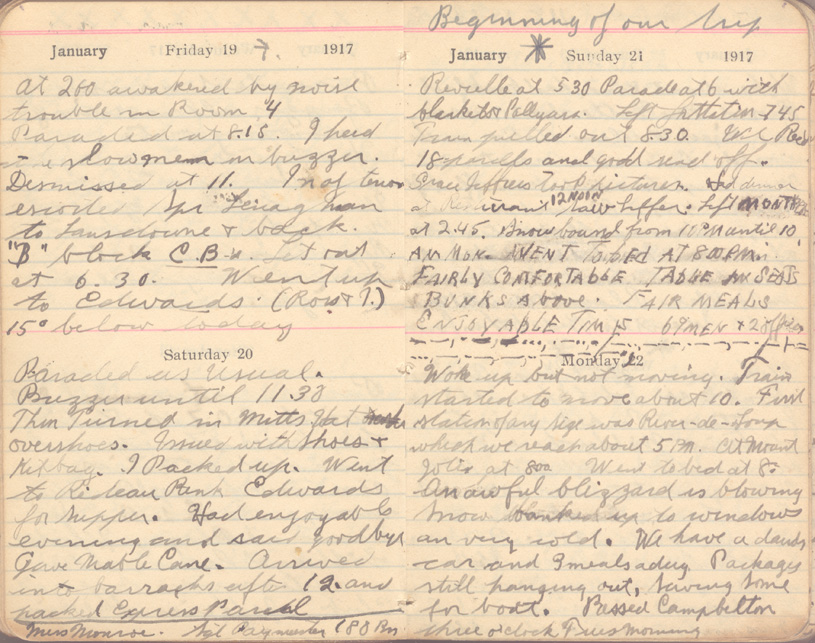 January Friday 19 1917
at 200 awakened by noise
trouble in Room 4
Paraded at 8.15. I had
slow men on buzzer.
Dismissed at 11.
man
to Lansdowne & back.
"B" block C.B. Let out
at 6.30. Went up
to Edwards. (Row & I.)
15° below today
Saturday 20
Paraded as Usual.
Buzzer until 11.30
Then Turned in Mitts Hat
overshoes. Issued with Shoes &
Kitbag. I Packed up. Went
to Rideau Rink Edwards
for supper. Had enjoyable
evening and said goodbye
Gave Mable Cane. Arrived
into barracks after 12 and
packed Express Parcel
Miss Monroe. Sgt Paymaster 180 Bn
Beginning of our trip
January Sunday 21 1917
Reveille at 530 Parade at 6 with
blankets & Pallyass. Left 745
Train pulled out 8.30.
18 parcells and good send off.
Grace Jeffress Took pictures. dinner
at 12 NOON saw Left
at 2.45. Snow bound from 10 PM until 10
AM MON. WENT TO BED AT 8.00 P.M.
FAIRLY COMFORTABLE TABLE AN SEATS
BUNKS ABOVE. FAIR MEALS
ENJOYABLE TIME 69 MEN & 2 officers
Monday 22
Woke up but not moving. Train
started to move about 10. First
station of any size was River-de-Loup
which we reach about 5 PM. At Mount
Jolie at 800 Went to bed at 8.
An awful blizzard is blowing
Snow banked up to windows
an very cold. We have a dandy
car and 3 meals a day. Packages
still hanging out, Saving some
for boat. Passed Campbelton
three o'clock Tues morning